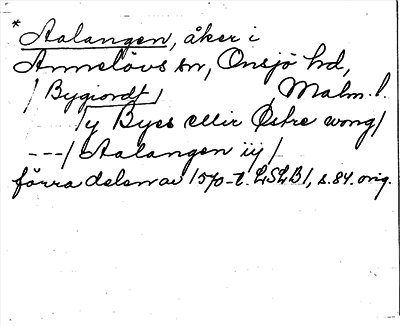 * Aalangen, åker i
Annelövs sn, Onsjö hd,
/ Bygiordt / Malm. l.
/ y Byes ellir Østre wong /
--- / Aalangen iij /
förra delen av 1570-t. LSLB 1, s. 84. orig.